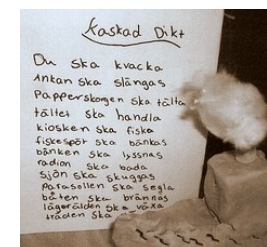 Kaskad Dikt
Du ska kvacka
Ankan ska slängas
Papperskorgen ska tälta
tältet ska handla
kiosken ska fiska
fiskespöt ska bänkas
bänken ska lyssnas
radion ska bada
sjön ska skuggas
parasollen ska segla
båten ska brännas
lägerälden ska växa
träden ska